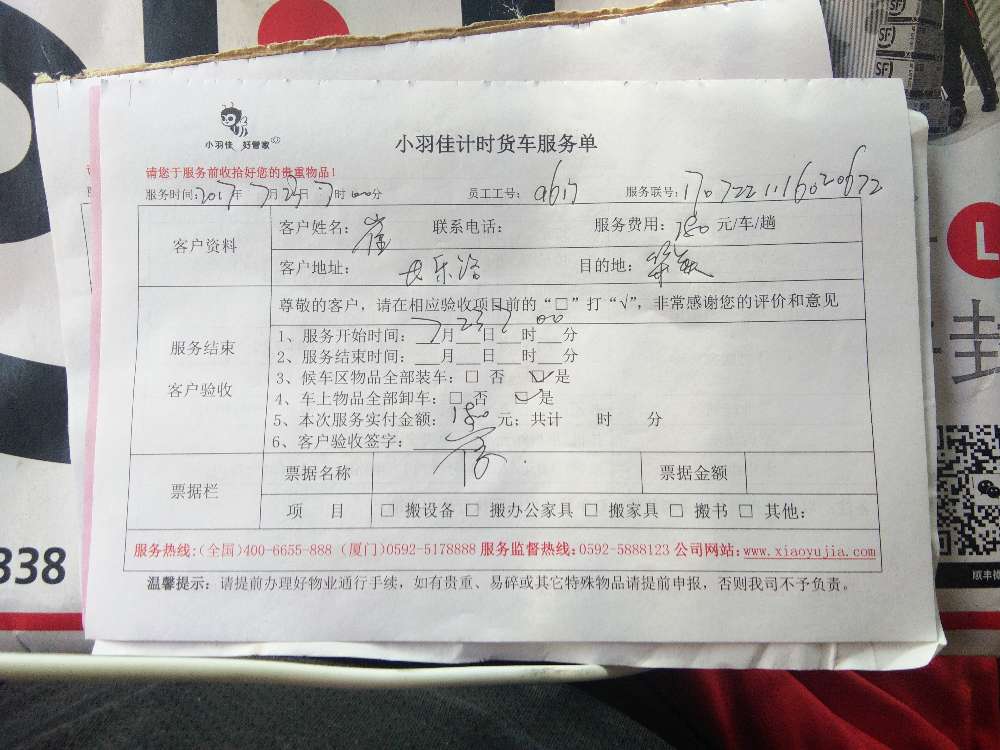 小羽佳 好管家
小羽佳计时货车服务单
请您于服务前收拾好您的贵重物品!
服务时间:2017年 7月23日 7时 00分 员工工号: a617 服务联号:
客户资料 客户姓名: 崔 联系电话: 服务费用: 180 元/车/趟
客户地址: 目的地:
尊敬的客户，请在相应验收项目前的“□”打“√”，非常感谢您的评价和意见
服务结束
客户验收
1、服务开始时间: 7月23日7时00分
2、服务结束时间: 月 日 时 分
3、候车区物品全部装车: □ 否 ☑是
4、车上物品全部卸车: □ 否 ☑是
5、本次服务实付金额: 180 元; 共计 时 分
6、客户验收签字:
票据栏 票据名称 票据金额
项 目 □ 搬设备 □ 搬办公家具 □ 搬家具 □ 搬书 □ 其他:
服务热线:(全国)400-6655-888 (厦门)0592-5178888 服务监督热线:0592-5888123 公司网站:www.xiaoyujia.com
温馨提示: 请提前办理好物业通行手续，如有贵重、易碎或其它特殊物品请提前申报，否则我司不予负责。
338
SF
SF
SF
L
封